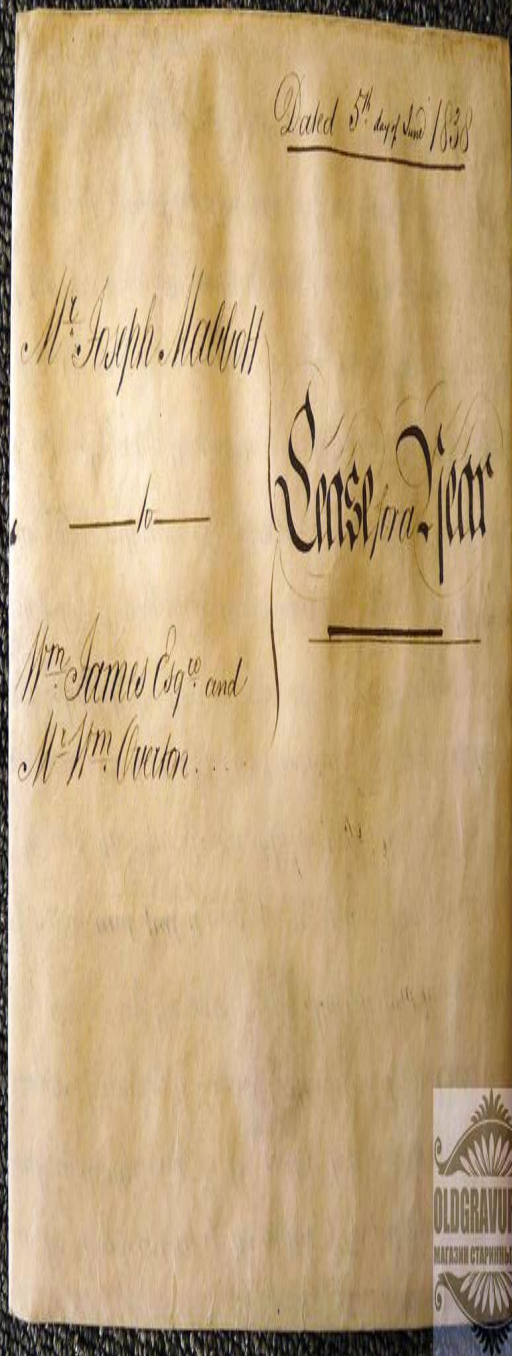 Dated 5th day of June 1838
Mr. Joseph Mabbott
to
Wm. James Esqre. and
Mr. Wm. Overton. . . . .
Lease for a Year
OLDGRAVU
МАГАЗИН СТАРИННЫ